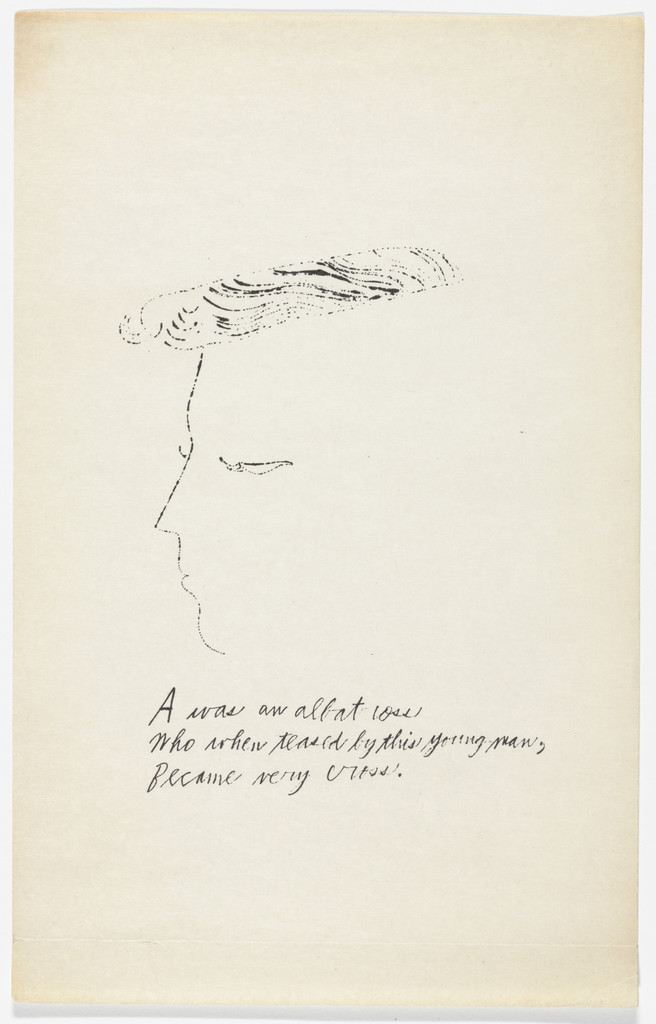 A was an albatross
Who when teased by this young man,
Became very cross.